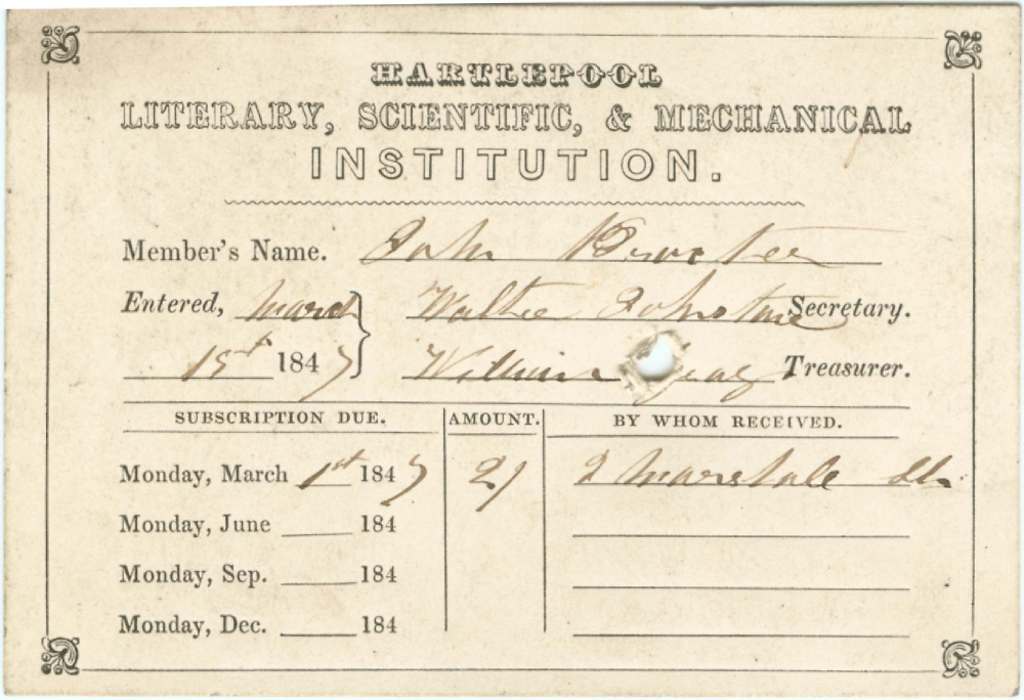 HARTLEPOOL
LITERARY, SCIENTIFIC, & MECHANICAL
INSTITUTION.
Member's Name. John Procter
Entered, March Walter Johnstone Secretary.
1st 1847 William Treasurer.
SUBSCRIPTION DUE. AMOUNT. BY WHOM RECEIVED.
Monday, March 1st 1847 2/ J Marshall
Monday, June 184
Monday, Sep. 184
Monday, Dec. 184